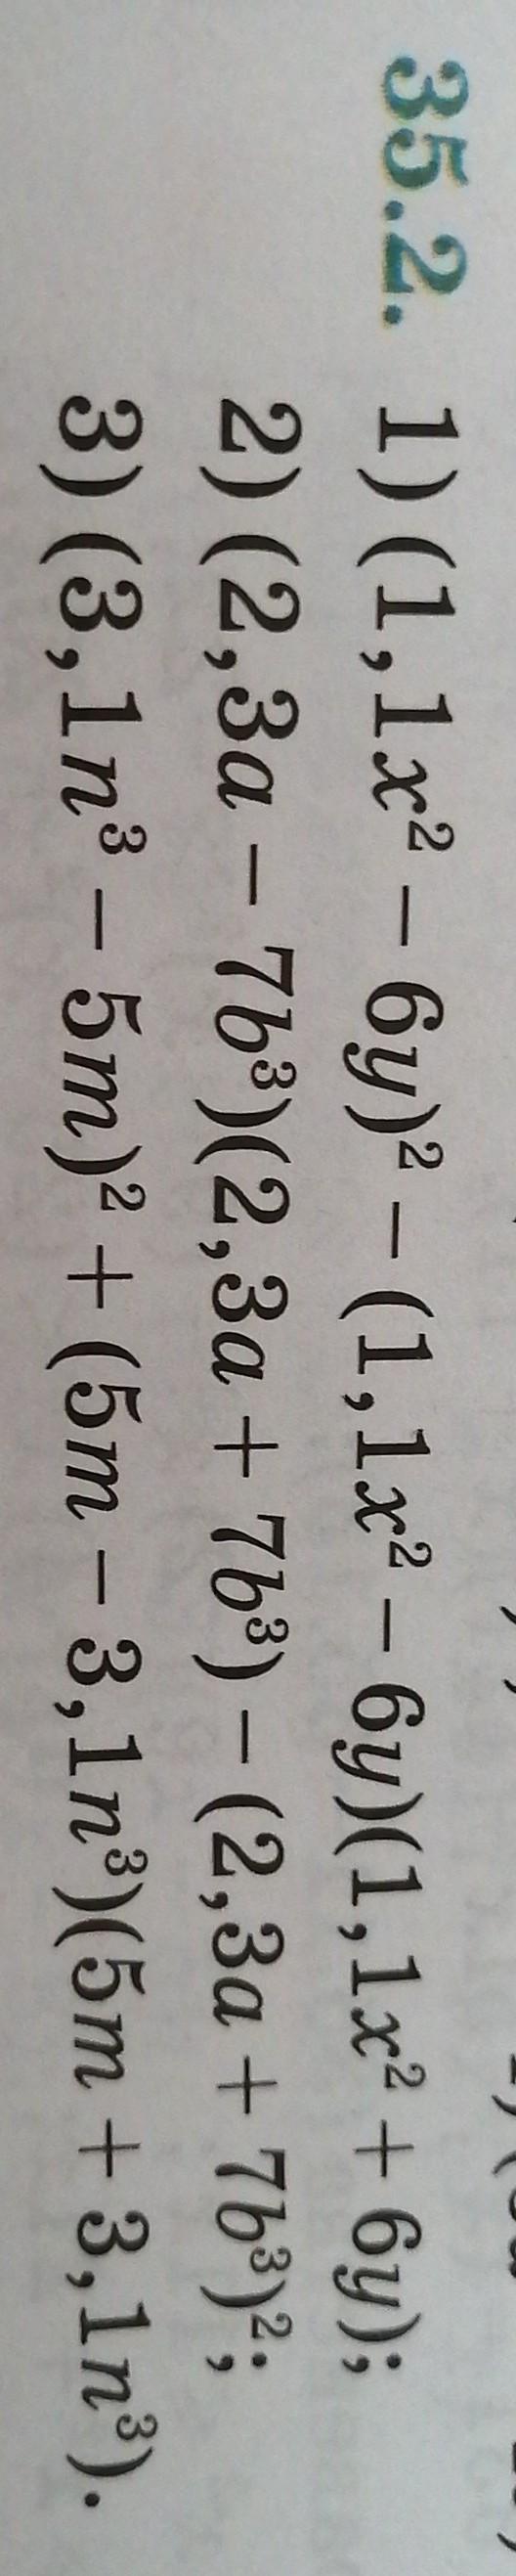 35.2. 1) (1,1x² − 6y)² − (1,1x² − 6y)(1,1x² + 6y);
2) (2,3a − 7b³)(2,3a + 7b³) − (2,3a + 7b³)²;
3) (3,1n³ − 5m)² + (5m − 3,1n³)(5m + 3,1n³).